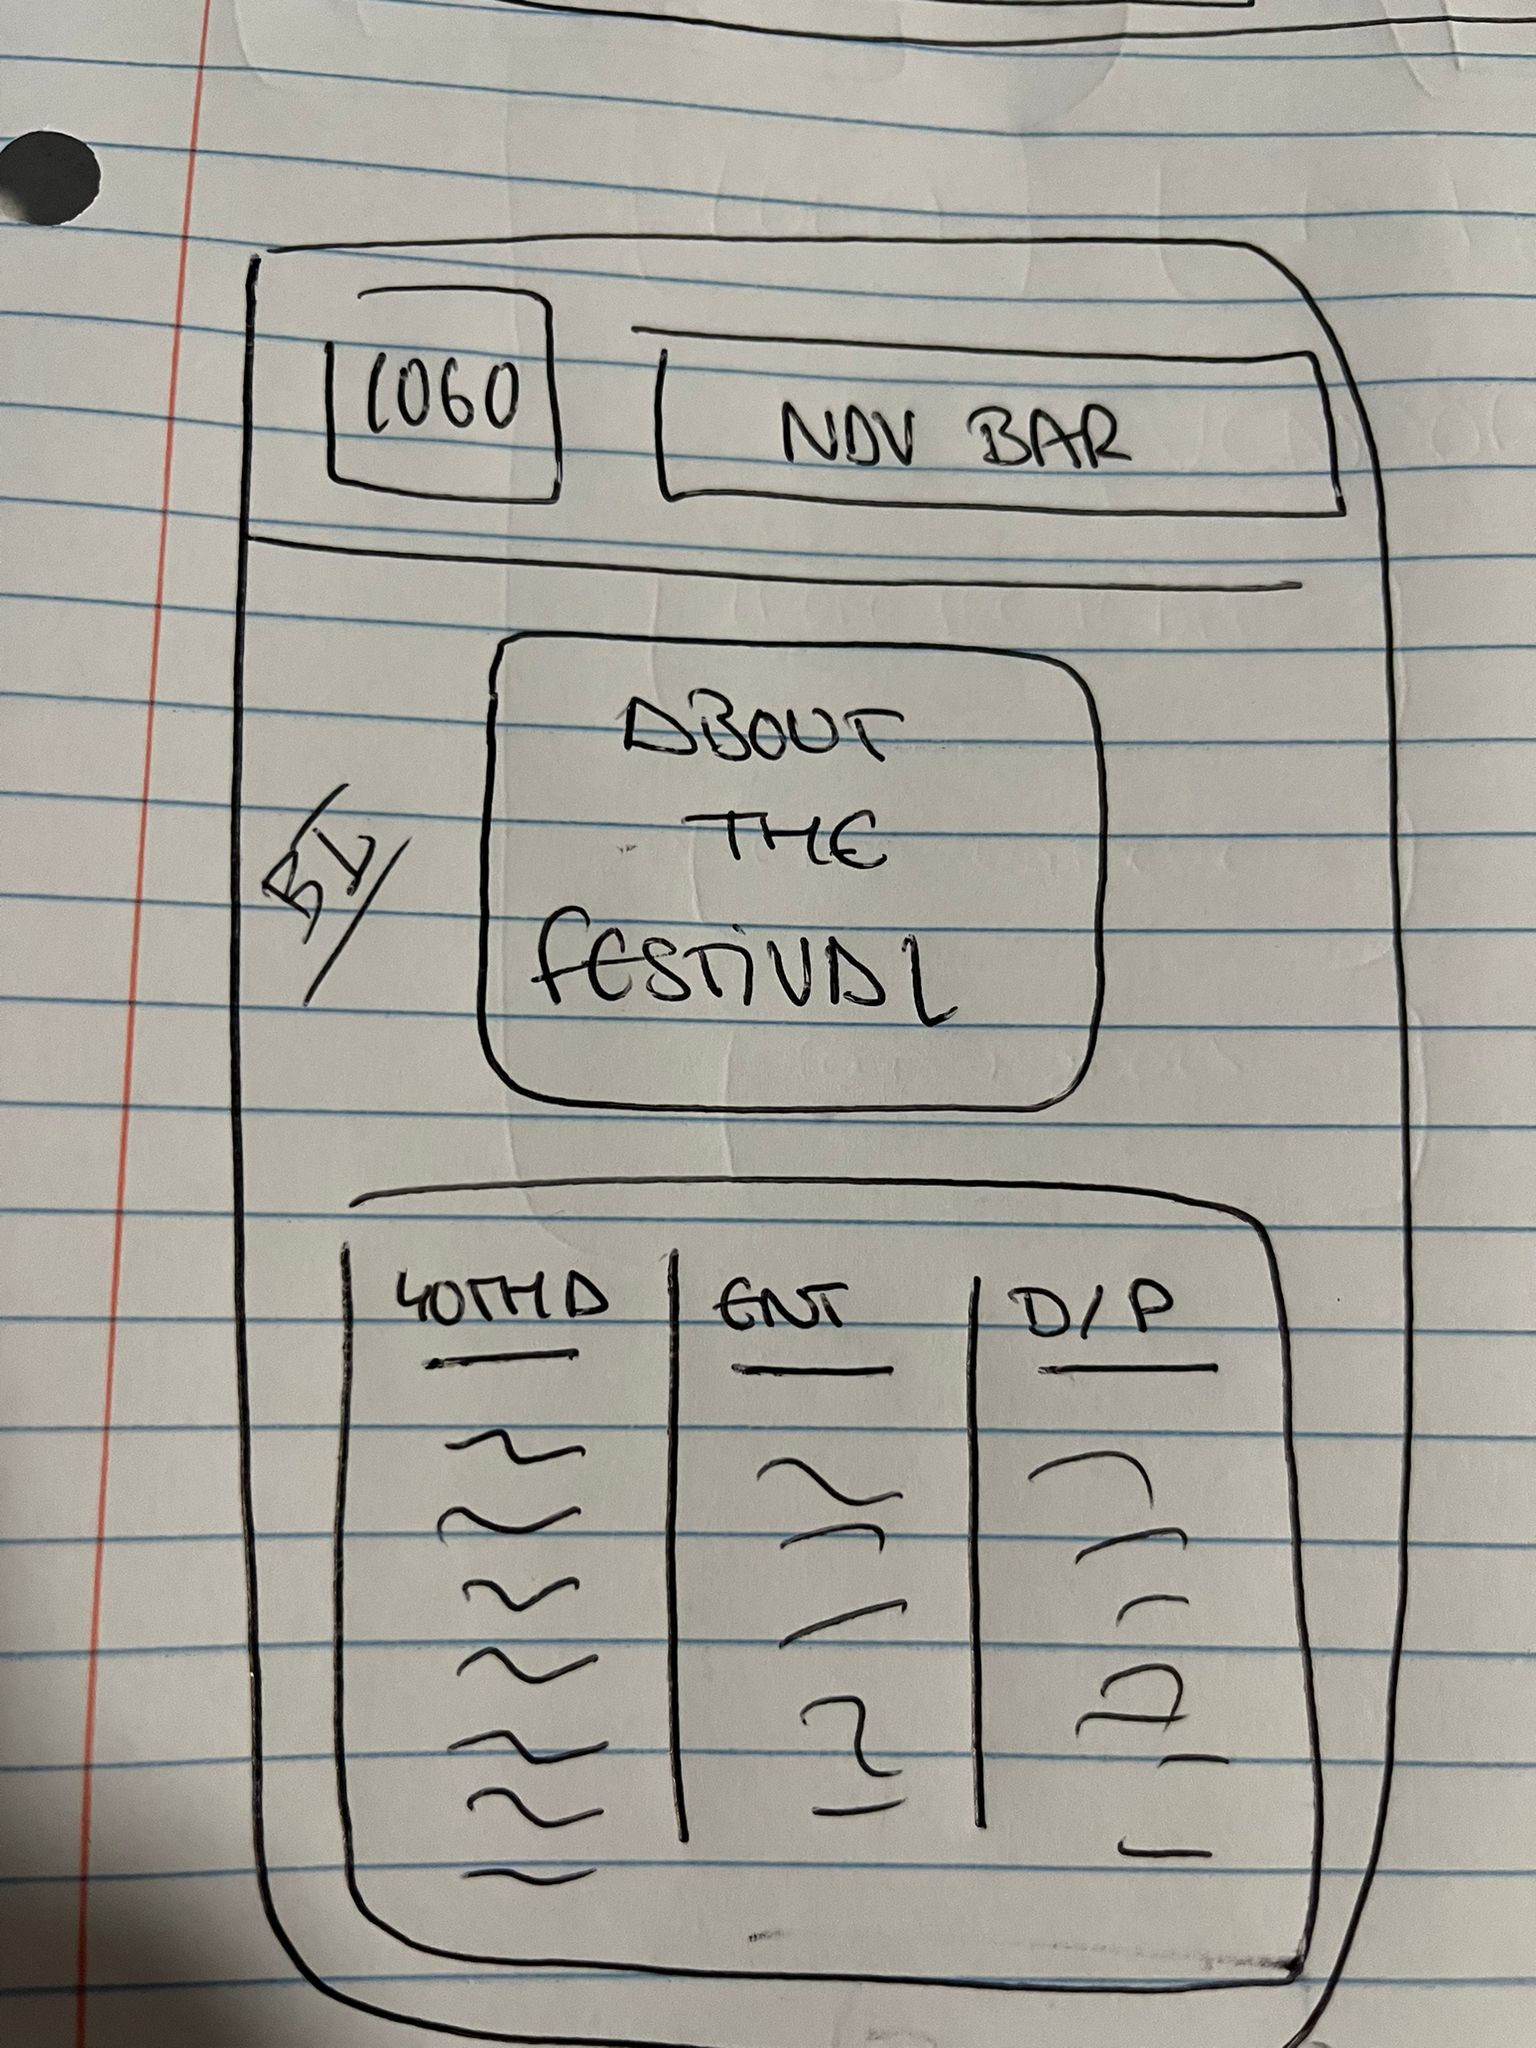 LOGO
NAV BAR
ABOUT
THE
FESTIVAL
40TH A
ENT
D/P